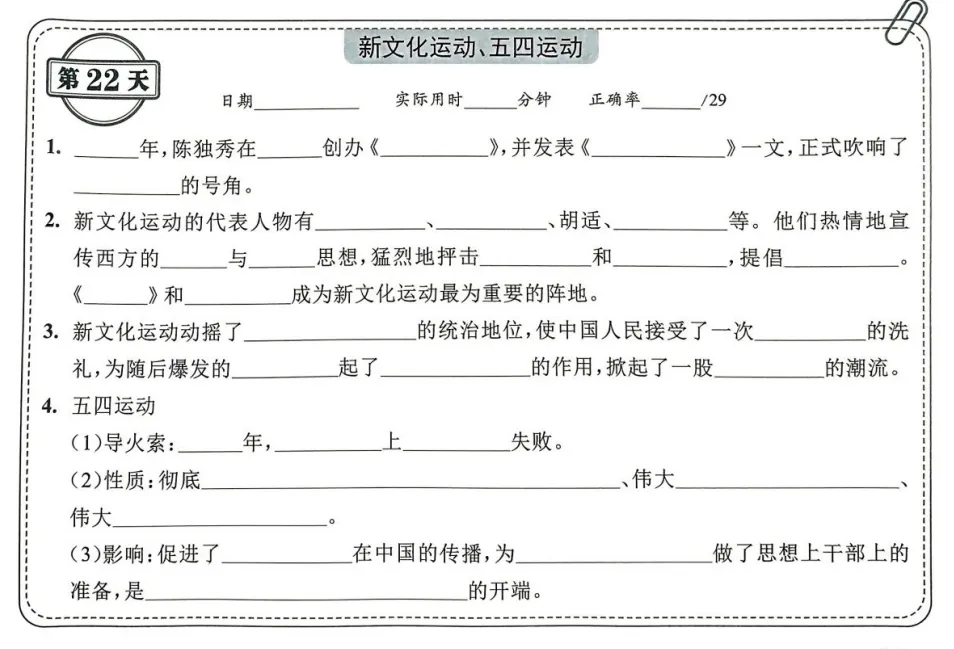 新文化运动、五四运动
第22天
日期________ 实际用时____分钟 正确率____/29
1. ____年,陈独秀在____创办《________》,并发表《________》一文,正式吹响了
________的号角。
2. 新文化运动的代表人物有________、________、胡适、________等。他们热情地宣
传西方的____与____思想,猛烈地抨击________和________,提倡________。
《____》和________成为新文化运动最为重要的阵地。
3. 新文化运动动摇了____________的统治地位,使中国人民接受了一次________的洗
礼,为随后爆发的________起了__________的作用,掀起了一股________的潮流。
4. 五四运动
(1)导火索:____年,________上________失败。
(2)性质:彻底____________________________、伟大________________、
伟大________________。
(3)影响:促进了________在中国的传播,为____________做了思想上干部上的
准备,是____________________的开端。